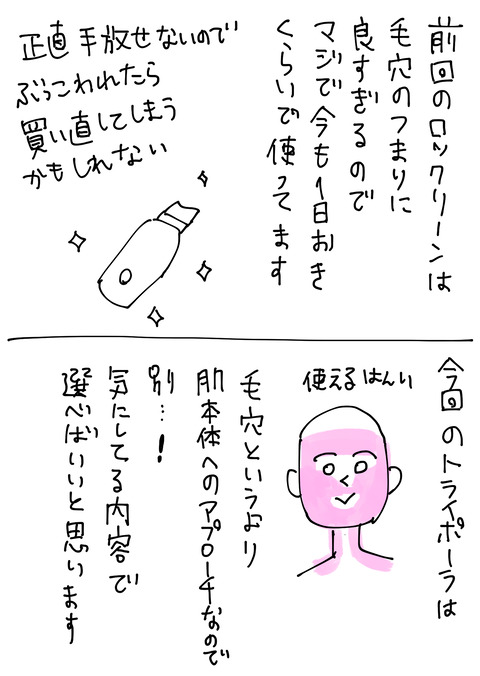 前回のロックリーンは
毛穴のつまりに
良すぎるので
マジで今も1日おき
くらいで使ってます
正直手放せないので
ぶっこわれたら
買い直してしまう
かもしれない
今回のトライポーラは
使えるはんい
毛穴というより
肌本体へのアプローチなので
別…!
気にしてる内容で
選べばいいと思います